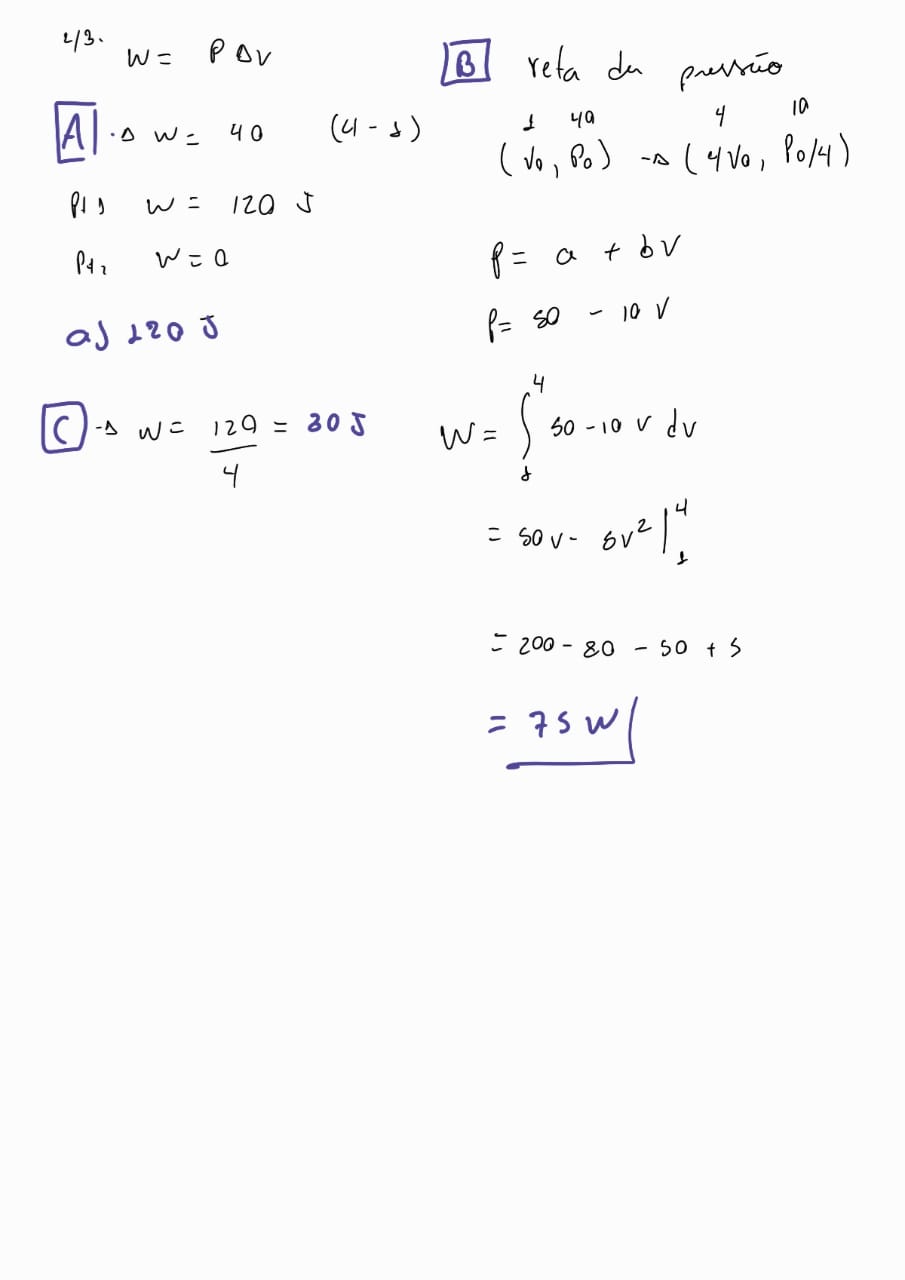 2/3.
W = P ΔV
A → W = 40 (4 - 1)
Pt1 W = 120 J
Pt2 W = 0
a) 120 J
C → W = 120/4 = 30 J
B reta da pressão
1 40 4 10
(V0, P0) → (4V0, P0/4)
P = a + bV
P = 50 - 10 V
W = ∫₁⁴ 50 - 10 V dV
= 50V - 5V² |₁⁴
= 200 - 80 - 50 + 5
= 75 W